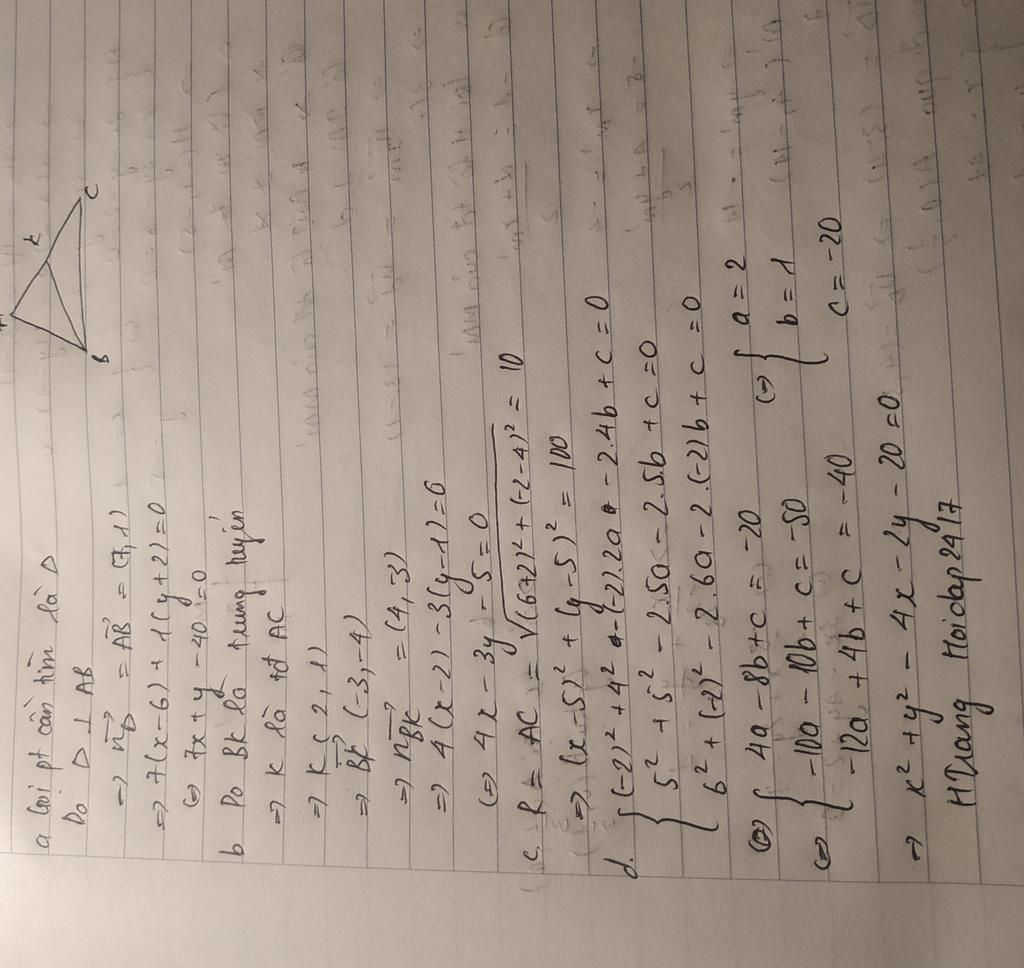 A
K
B
C
a Gọi pt cần tìm là Δ
Do Δ ⊥ AB
=> n_Δ→ = AB→ = (7,1)
=> 7(x-6) + 1(y+2) = 0
(=) 7x + y - 40 = 0
b Do BK là trung tuyến
=> K là tđ AC
=> K(2,1)
=> BK→ (-3,-4)
=> n_BK→ = (4,-3)
=> 4(x-2) - 3(y-1) = 0
(=) 4x - 3y - 5 = 0
c. R = AC = √(6+2)² + (-2-4)² = 10
=> (x-5)² + (y-5)² = 100
d. { (-2)² + 4² - (-2).2a - 2.4b + c = 0
5² + 5² - 2.5a - 2.5b + c = 0
6² + (-2)² - 2.6a - 2.(-2)b + c = 0
(=) { 4a - 8b + c = -20 (=) { a = 2
(=) { -10a - 10b + c = -50 b = 1
-12a + 4b + c = -40 c = -20
=> x² + y² - 4x - 2y - 20 = 0
HQuang Hoidap247